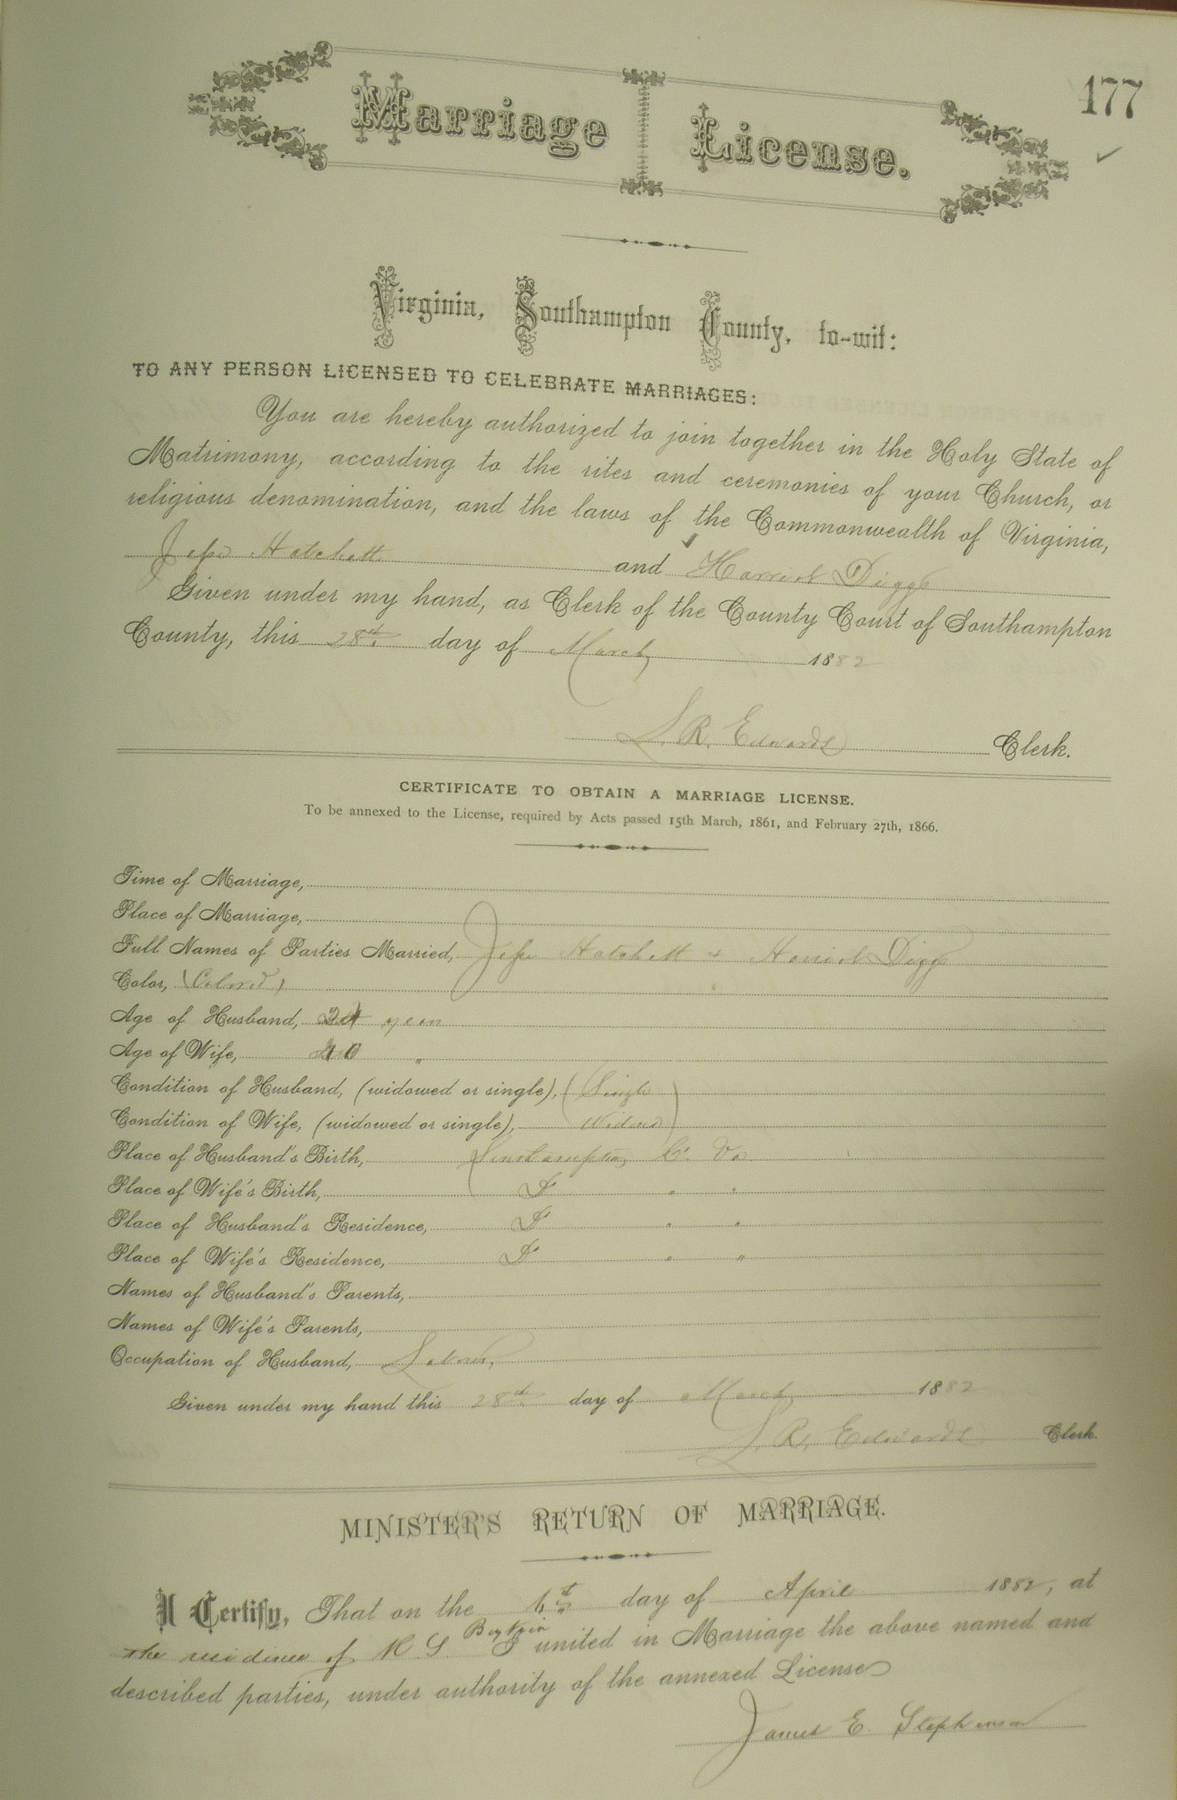 177
Marriage License.
Virginia, Southampton County, to-wit:
TO ANY PERSON LICENSED TO CELEBRATE MARRIAGES:
You are hereby authorized to join together in the Holy State of
Matrimony, according to the rites and ceremonies of your Church, or
religious denomination, and the laws of the Commonwealth of Virginia,
Jesse Hatchett and Harriet Diggs
Given under my hand, as Clerk of the County Court of Southampton
County, this 28th day of March 1882
L. R. Edwards Clerk.
CERTIFICATE TO OBTAIN A MARRIAGE LICENSE.
To be annexed to the License, required by Acts passed 15th March, 1861, and February 27th, 1866.
Time of Marriage,
Place of Marriage,
Full Names of Parties Married, Jesse Hatchett + Harriet Diggs
Color, (Colored)
Age of Husband, years
Age of Wife, "
Condition of Husband, (widowed or single), (Single
Condition of Wife, (widowed or single), Widow)
Place of Husband's Birth, Southampton Co. Va
Place of Wife's Birth, Do " "
Place of Husband's Residence, Do " "
Place of Wife's Residence, Do " "
Names of Husband's Parents,
Names of Wife's Parents,
Occupation of Husband, Laborer,
Given under my hand this 28th day of March 1882
L. R. Edwards Clerk.
MINISTER'S RETURN OF MARRIAGE.
I Certify, That on the day of April 1882, at
the residence of R. S. Boykin I united in Marriage the above named and
described parties, under authority of the annexed License
James E. Stephenson